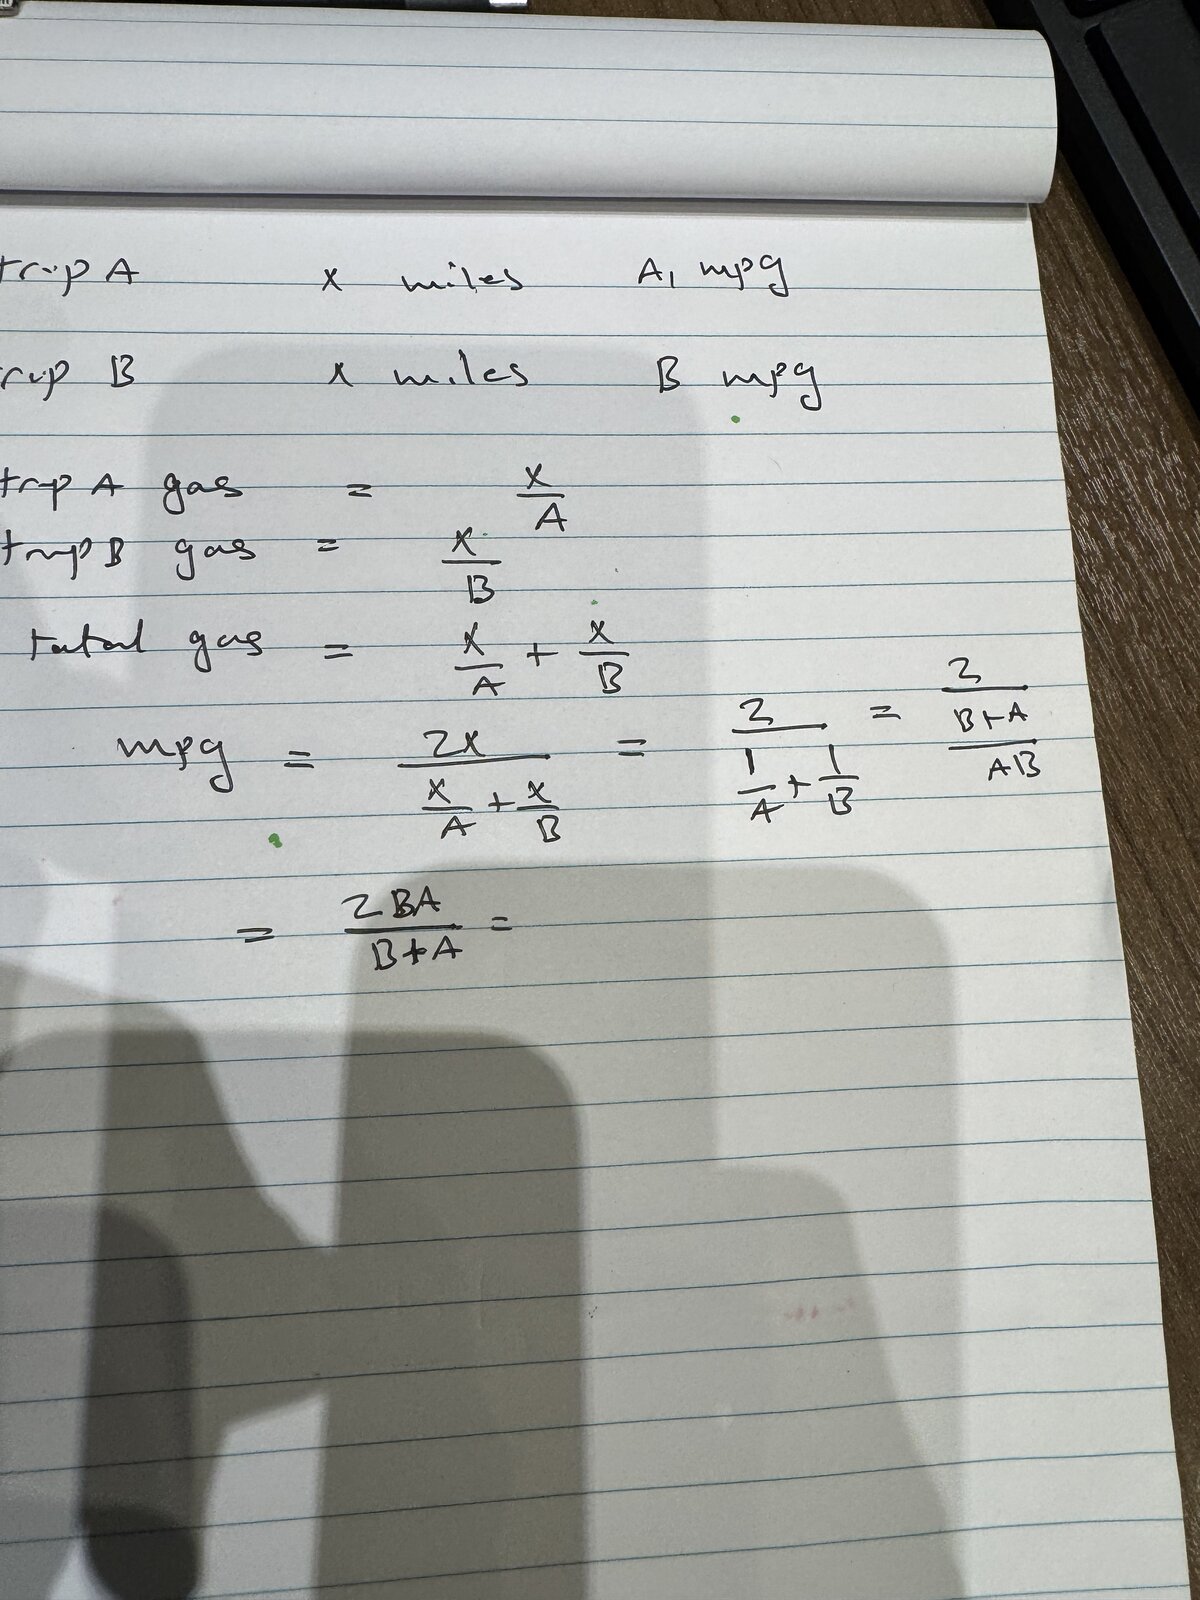 trip A x miles A, mpg
rip B x miles B mpg
trip A gas = x/A
trip B gas = x/B
total gas = x/A + x/B
mpg = 2x/(x/A + x/B) = 2/(1/A + 1/B) = 2/((B+A)/AB)
= 2BA/(B+A) =